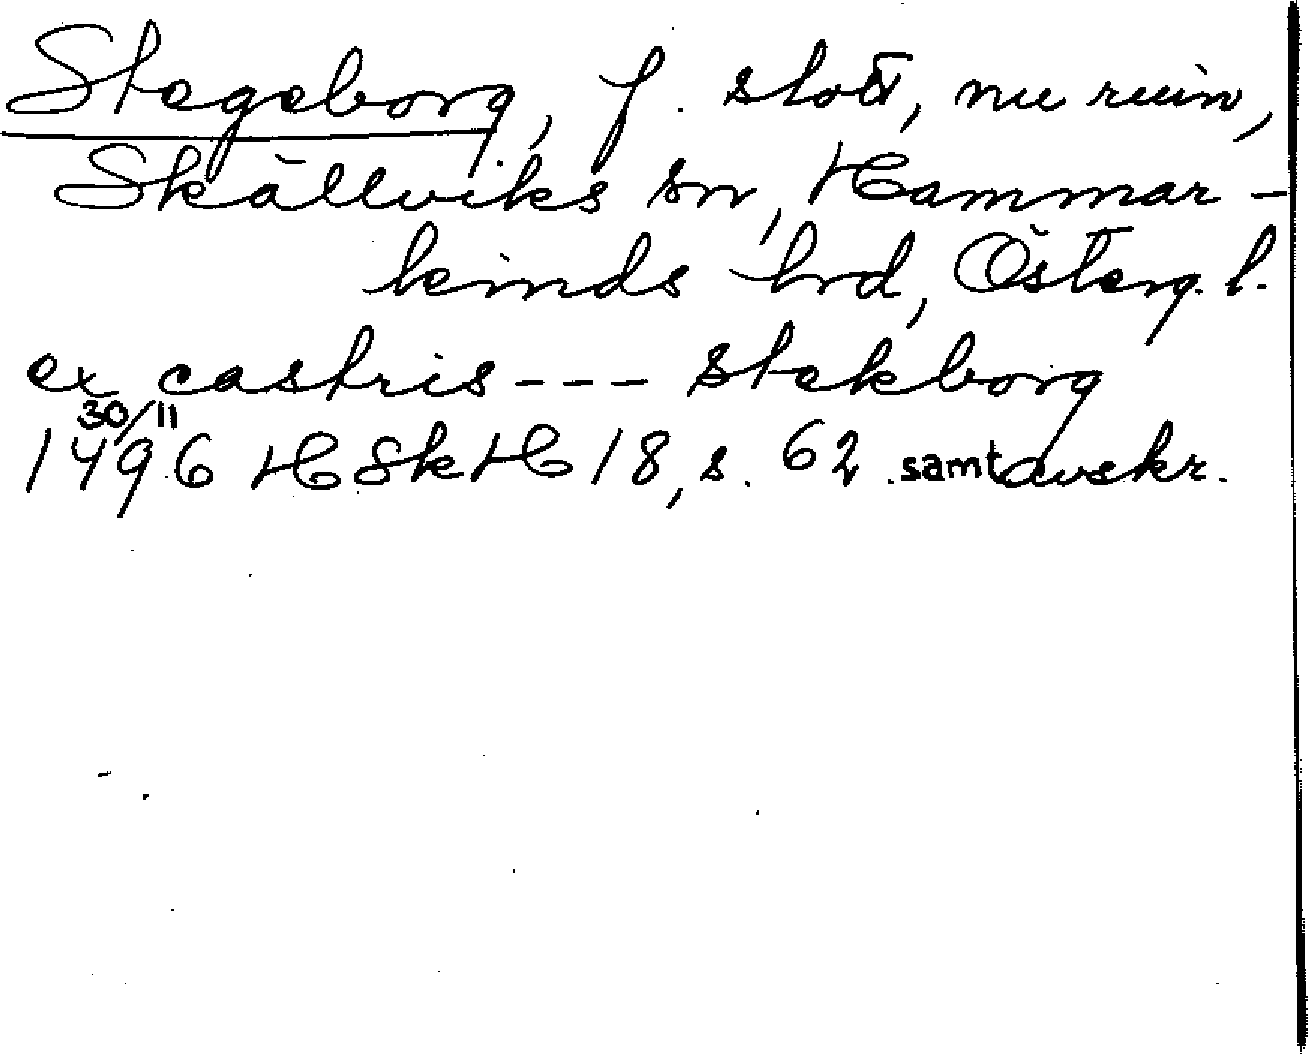 Stegeborg, f. slott, nu ruin,
Skällviks sn, Hammar-
kinds hrd, Österg. l.
ex castris --- stekborg
30/11
1496 HSkH 18, s. 62 samt avskr.